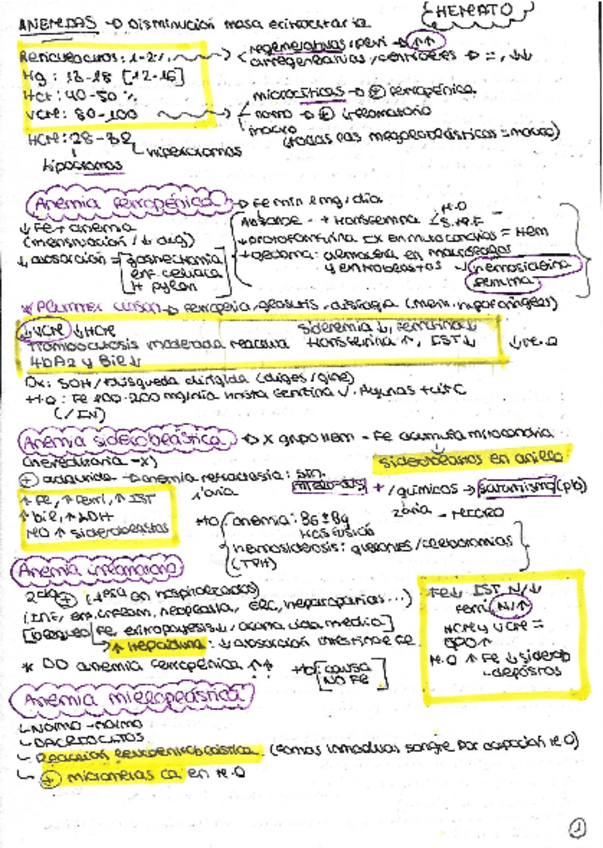 HEMATO
ANEMIAS → Disminución masa eritrocitaria
Reticulocitos: 1-2% → regenerativas/peri → ↑↑
arregenerativas/centrales → =, ↓↓
Hg: 13-18 [12-16]
Hct: 40-50%
VCM: 80-100 → microcíticas → + ferropénica
normo → + inflamatoria
macro (todas las megaloblásticas = macro)
HCM: 28-32
hipercromas
hipocromas
Anemia ferropénica → Fe min 1mg/día
↓ Fe + anemia
(menstruación / ↓ dig)
↓ absorción = gastrectomía
enf. celiaca
H pylori
Absorbe - + transferrina
M.O
S.M.F
en mitocondrias = Hem
almacena en macrófagos
y eritroblastos
hemosiderina
ferritina
* Plummer Vinson → ferropenia, glositis, disfagia (mem. hipofaríngeas)
↓VCM ↓HCM Sideremia ↓, Ferritina ↓
Trombocitosis moderada reactiva transferrina ↑, IST ↓
HbA2 y Bil ↓
↓M.O
Dx: SOH / búsqueda dirigida (diges/gine)
tto: Fe 100-200 mg/día hasta ferritina √. Ayunas + vit C
(/IV)
Anemia sideroblástica → X grupo Hem - Fe acumula mitocondria
sideroblastos en anillo
(hereditaria -X)
+ adquirida → anemia refractaria: sín. mielodis + /químicos → saturnismo (pb)
1aria
2aria - MICRO
↑ Fe, ↑ Ferri, ↑ IST
↑ bil, ↑ LDH
MO ↑ sideroblastos
tto anemia: B6 ± B9
transfusión
hemosiderosis: quelantes / flebotomías
(TPH)
Anemia inflamatoria
2ª + (1era en hospitalizados)
(INF, enf. inflam, neoplasia, ERC, hepatopatías...)
[bloqueo Fe, eritropoyesis ↓, acorta vida media]
↑ Hepcidina: ↓ absorción intestinal Fe
* DD anemia ferropénica ↑↑ tto: causa
NO Fe
Fe ↓ IST N/↓
Ferri N/↑
HCM y VCM =
EPO ↑
M.O ↑ Fe ↓ siderob
depósitos
Anemia mieloptísica
- Normo - normo
- DACRIOCITOS
- Reacción leucoeritroblástica (formas inmaduras sangre por ocupación M.O)
- + micrometás ca en M.O
1